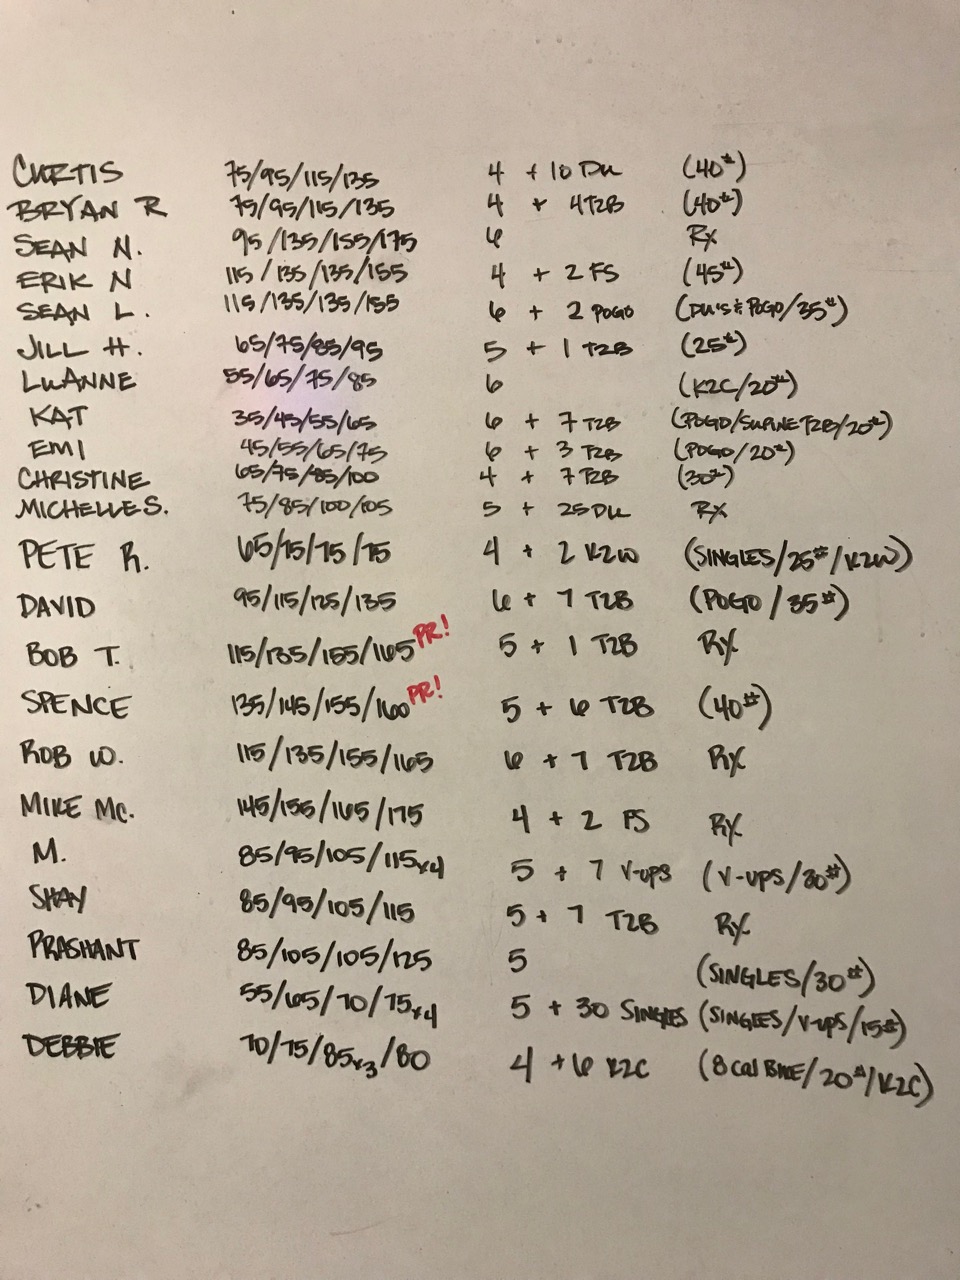 CURTIS 75/95/115/135 4 + 10 DU (40#)
BRYAN R 75/95/115/135 4 + 4T2B (40#)
SEAN N. 95/135/155/175 6 RX
ERIK N 115/135/135/155 4 + 2 FS (45#)
SEAN L. 115/135/135/155 6 + 2 POGO (DU'S & POGO/35#)
JILL H. 65/75/85/95 5 + 1 T2B (25#)
LUANNE 55/65/75/85 6 (K2C/20#)
KAT 35/45/55/65 6 + 7 T2B (POGO/SUPINE T2B/20#)
EMI 45/55/65/75 6 + 3 T2B (POGO/20#)
CHRISTINE 65/75/85/100 4 + 7 T2B (30#)
MICHELLE S. 75/85/100/105 5 + 25 DU RX
PETE R. 65/75/75/75 4 + 2 K2W (SINGLES/25#/K2W)
DAVID 95/115/125/135 6 + 7 T2B (POGO/35#)
BOB T. 115/135/155/165 PR! 5 + 1 T2B RX
SPENCE 135/145/155/160 PR! 5 + 6 T2B (40#)
ROB W. 115/135/155/165 6 + 7 T2B RX
MIKE MC. 145/155/165/175 4 + 2 FS RX
M. 85/95/105/115x4 5 + 7 V-UPS (V-UPS/30#)
SHAY 85/95/105/115 5 + 7 T2B RX
PRASHANT 85/105/105/125 5 (SINGLES/30#)
DIANE 55/65/70/75x4 5 + 30 SINGLES (SINGLES/V-UPS/15#)
DEBBIE 70/75/85x3/80 4 + 6 K2C (8 CAL BIKE/20#/K2C)